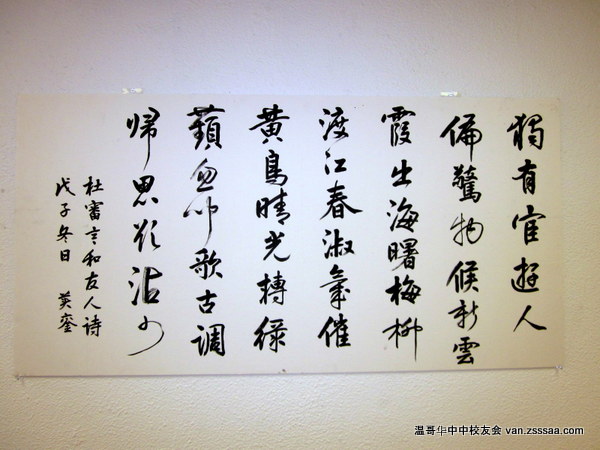 獨有宦遊人
偏驚物候新雲
霞出海曙梅柳
渡江春淑氣催
黃鳥晴光轉綠
蘋忽聞歌古調
歸思欲沾巾
杜審言和友人詩
戊子冬日 英
温哥华中中校友会 van.zsssaa.com